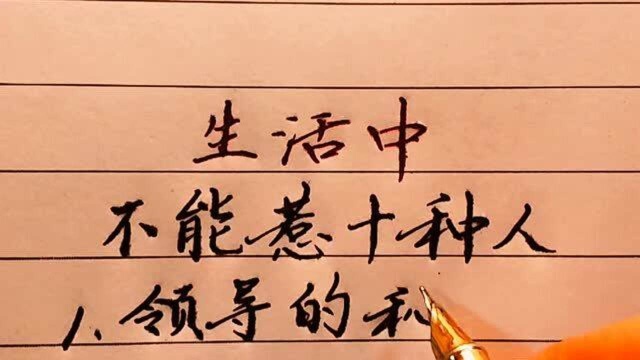 生活中
不能惹十种人
1.领导的